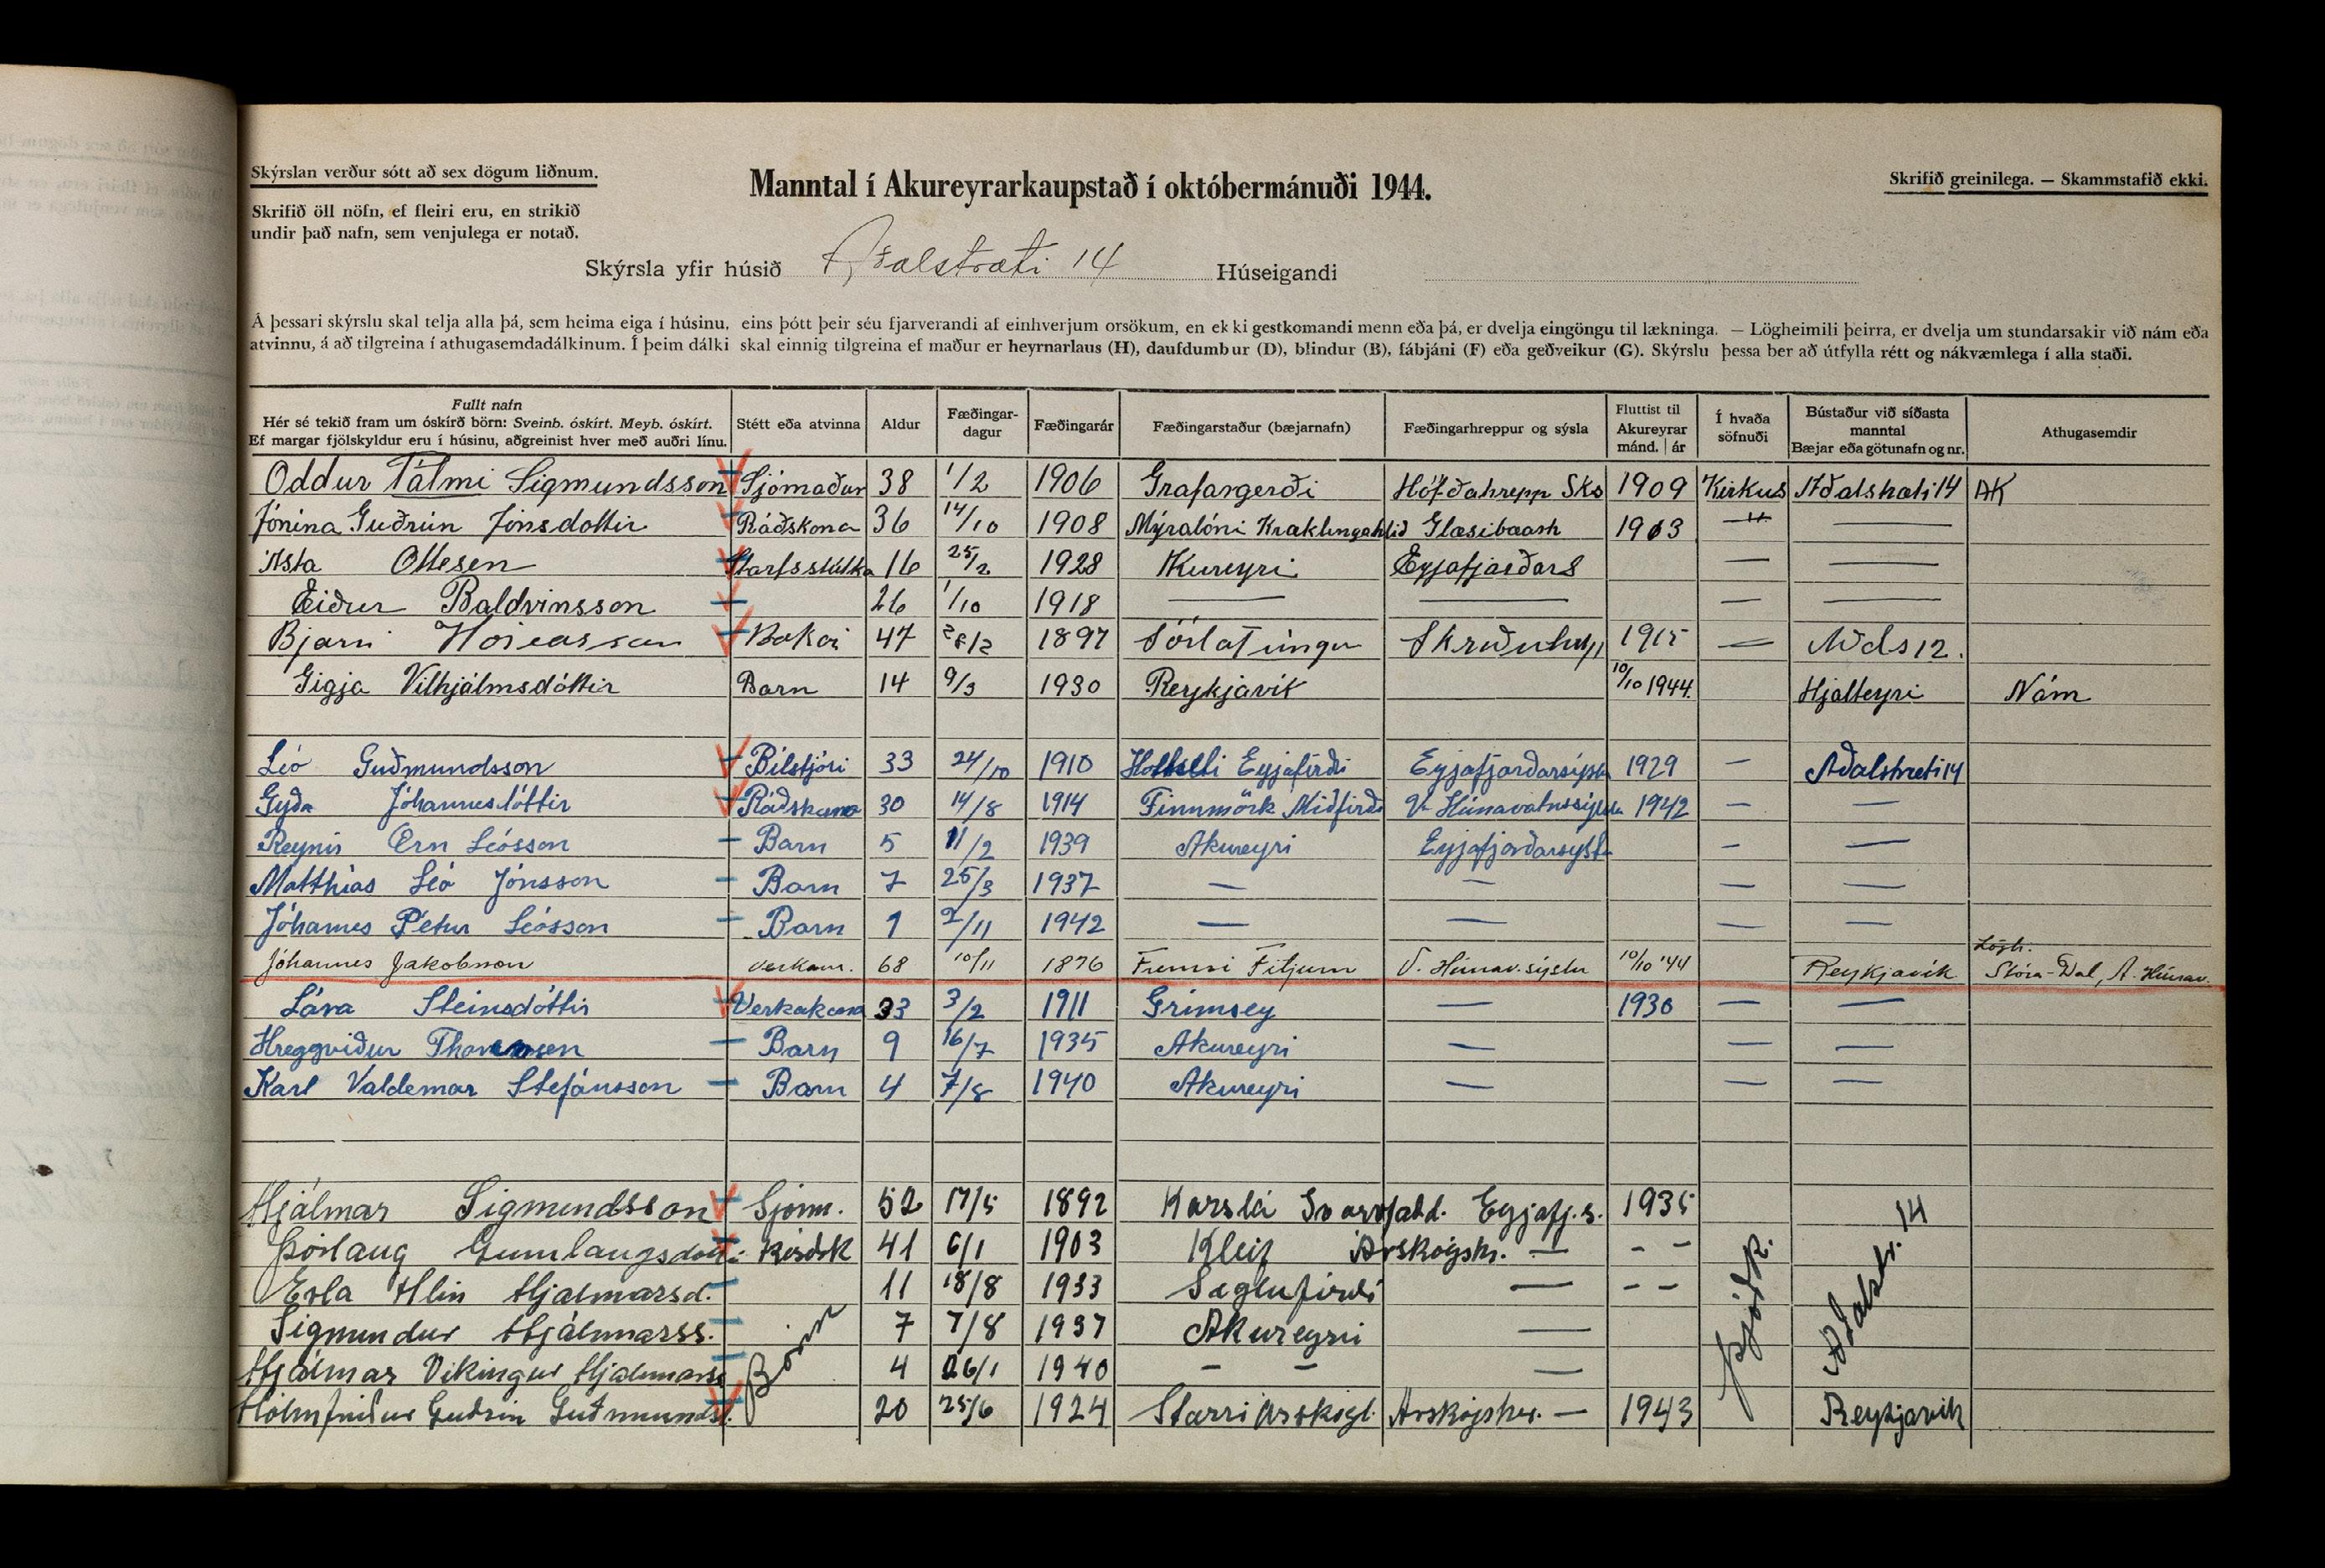 Skýrslan verður sótt að sex dögum liðnum.
Manntal í Akureyrarkaupstað í októbermánuði 1944.
Skrifið greinilega. — Skammstafið ekki.
Skrifið öll nöfn, ef fleiri eru, en strikið
undir það nafn, sem venjulega er notað.
Skýrsla yfir húsið Aðalstræti 14 Húseigandi
Á þessari skýrslu skal telja alla þá, sem heima eiga í húsinu, eins þótt þeir séu fjarverandi af einhverjum orsökum, en ekki gestkomandi menn eða þá, er dvelja eingöngu til lækninga. — Lögheimili þeirra, er dvelja um stundarsakir við nám eða
atvinnu, á að tilgreina í athugasemdadálkinum. Í þeim dálki skal einnig tilgreina ef maður er heyrnarlaus (H), daufdumbur (D), blindur (B), fábjáni (F) eða geðveikur (G). Skýrslu þessa ber að útfylla rétt og nákvæmlega í alla staði.
Fullt nafn
Hér sé tekið fram um óskírð börn: Sveinb. óskírt. Meyb. óskírt.
Ef margar fjölskyldur eru í húsinu, aðgreinist hver með auðri línu.
Stétt eða atvinna
Aldur
Fæðingar-
dagur
Fæðingarár
Fæðingarstaður (bæjarnafn)
Fæðingarhreppur og sýsla
Fluttist til
Akureyrar
mánd. | ár
Í hvaða
söfnuði
Bústaður við síðasta
manntal
Bæjar eða götunafn og nr.
Athugasemdir
Oddur Pálmi Sigmundsson Sjómaður 38 1/2 1906 Grafargerði Höfðahrepp Sks 1909 Kirkus Aðalstræti 14 AK
Jónina Guðrún Jónsdottir Ráðskona 36 14/10 1908 Mýralóni Kraklingahlið Glæsibæ 1913 —"— —
Asta Ottesen Starfsstúlka 16 25/2 1928 Akureyri Eyjafjarðars — —
Eiður Baldvinsson 26 1/10 1918 — — — —
Bjarni 47 28/2 1897 Þórlatunga 1915 — Aðds 12.
Gigja Vilhjálmsdóttir Barn 14 9/3 1930 Reykjavík 10/10 1944. Hjalteyri Nám
Léo Guðmundsson Bílstjóri 33 24/10 1910 Eyjafirði Eyjafjarðarsýslu 1929 — Aðalstræti 14
Gyða Jóhannesdóttir Ráðskona 30 14/8 1914 Finnmörk Miðfirði V- Húnavatnssýslu 1942 — —
Reynir Örn Léósson Barn 5 11/2 1939 Akureyri Eyjafjarðarsýslu — —
Matthias Léó Jónsson Barn 7 25/3 1937 — — — —
Jóhannes Pétur Léósson Barn 1 2/11 1942 — — — —
Lögh.
Jóhannes Jakobsson verkam. 68 10/11 1876 Fremri Fitjum V. Húnav.sýslu 10/10 '44 Reykjavík Stóra-Dal, A. Húnav.
Lára Steinsdóttir Verkakona 33 3/2 1911 Grimsey — 1930 — —
Hreggviður Barn 9 16/7 1935 Akureyri — — —
Karl Valdemar Stefánsson Barn 4 7/8 1940 Akureyri — — —
Hjálmar Sigmundsson Sjóm. 52 17/5 1892 Karslá Svarvfahd. Eyjafj.s. 1935 Þjóðk. Aðalstr. 14
Þórlaug Gunnlaugsdott: 41 6/1 1903 Kleif Arskógshr. — - -
Erla Hlin Hjalmarsd. Börn 11 18/8 1933 Siglufirði — - -
Sigmundur Hjálmarss. 7 7/8 1937 Akureyri —
Hjálmar Vikingur Hjalmarss 4 26/1 1940 - - —
Hólmfriður Guðrún Guðmundsd. 20 25/6 1924 Starri Arskógshr. — 1943 Reykjavik